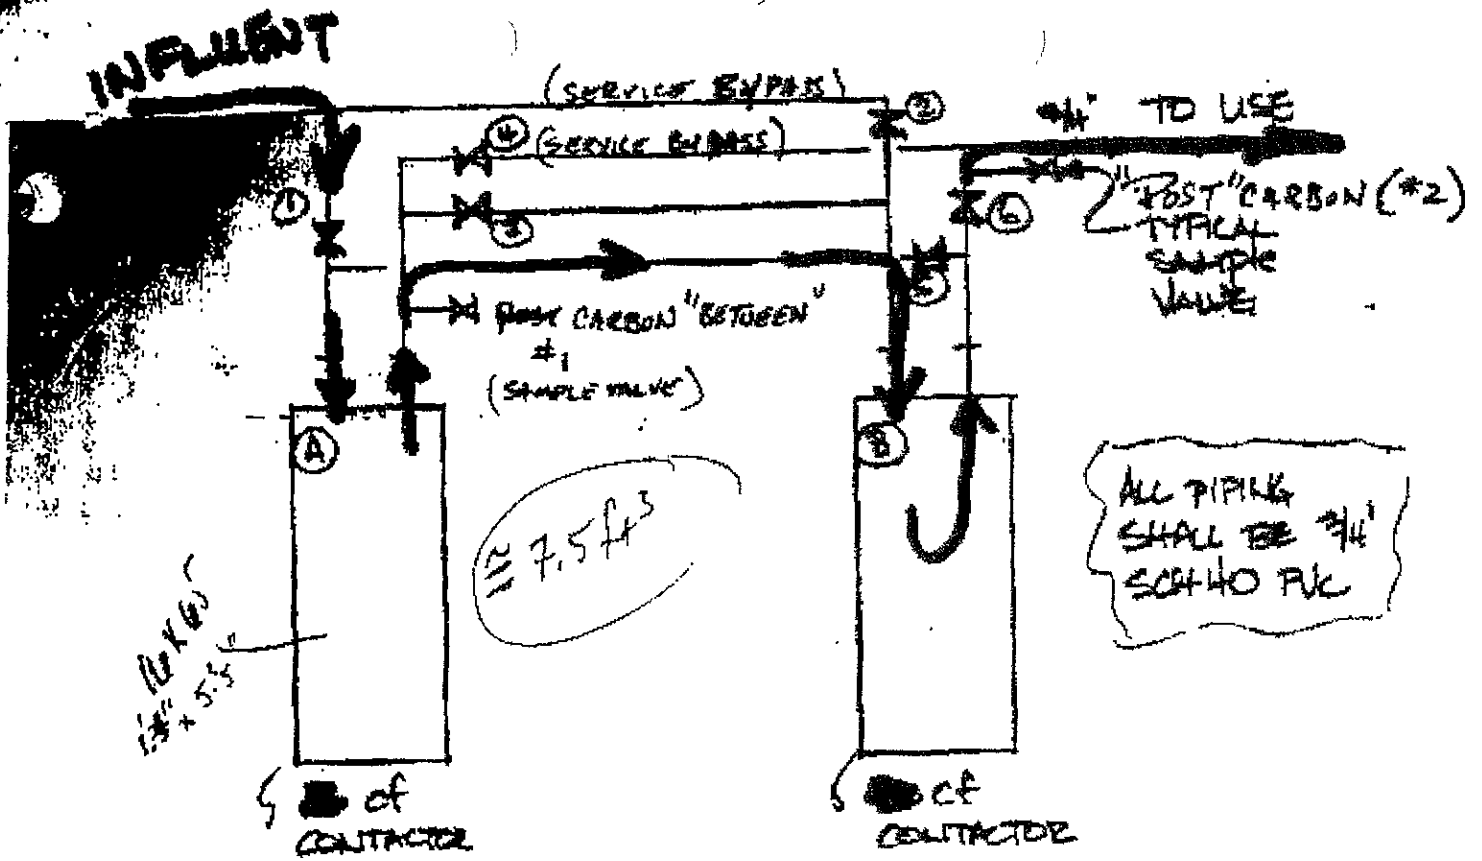 INFLUENT
(SERVICE BYPASS)
②
3/4" TO USE
④
(SERVICE BYPASS)
①
③
⑥
"POST" CARBON (#2)
TYPICAL
SAMPLE
VALVE
⑤
POST CARBON "BETWEEN"
#1
(SAMPLE VALVE)
Ⓐ
Ⓑ
≅ 7.5 ft³
ALL PIPING
SHALL BE 3/4"
SCH 40 PVC
cf
CONTACTOR
cf
CONTACTOR